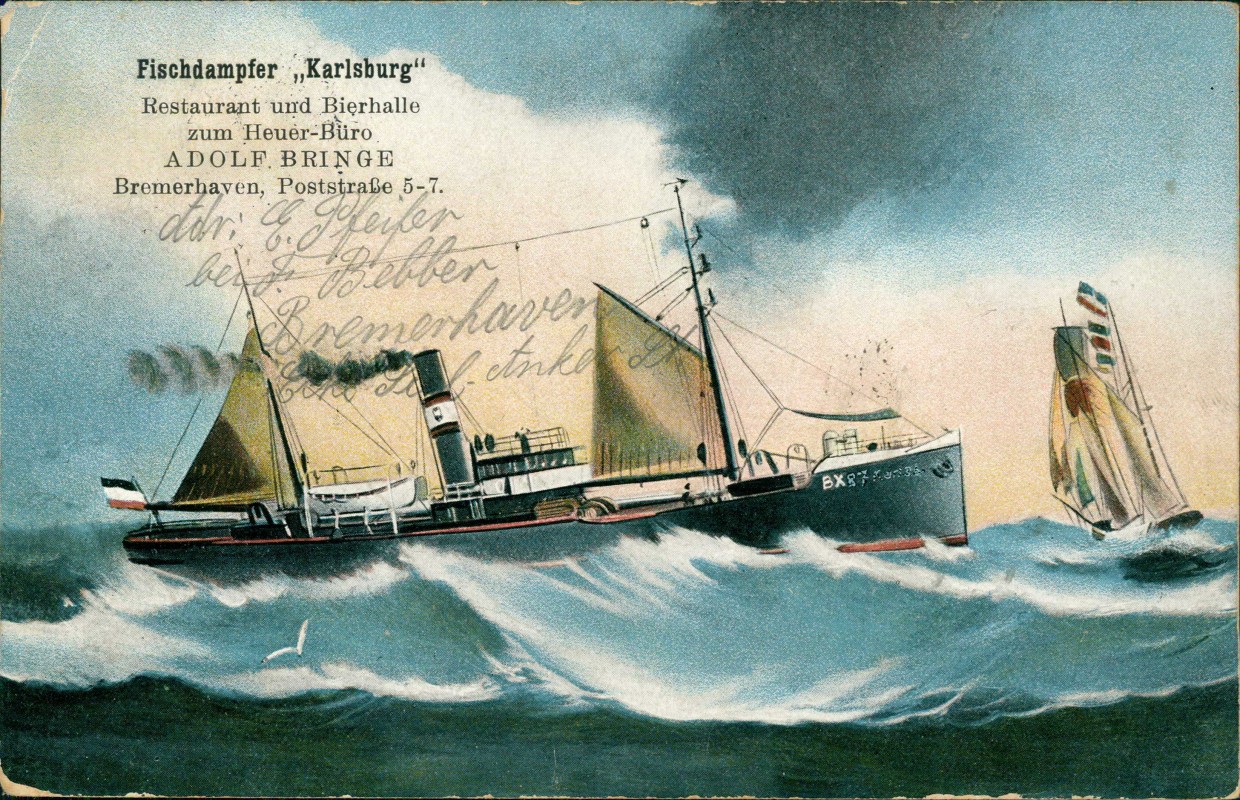 Fischdampfer „Karlsburg“
Restaurant und Bierhalle
zum Heuer-Büro
ADOLF BRINGE
Bremerhaven, Poststraße 5-7.
Adr: E. Pfeifer
bei F. Bebber
Bremerhaven
Anker Str
BX 87